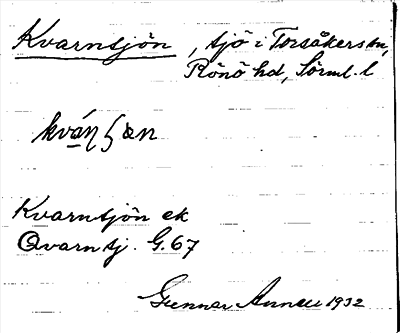 Kvarnsjön, sjö i Torsåkers sn,
Rönö hd, Sörml. l
Kvarnsjön ek
Qvarnsj. G. 67
Gunnar 1932